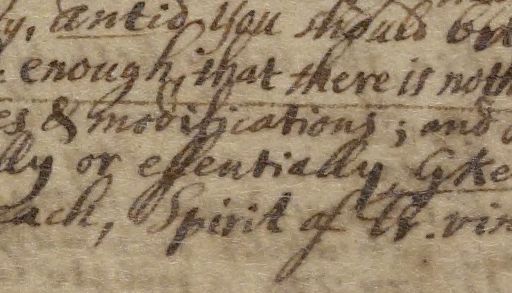 y, antid you should but
enough, that there is noth
es & modifications; and
lly or essentially
each, Spirit of Tr. vin